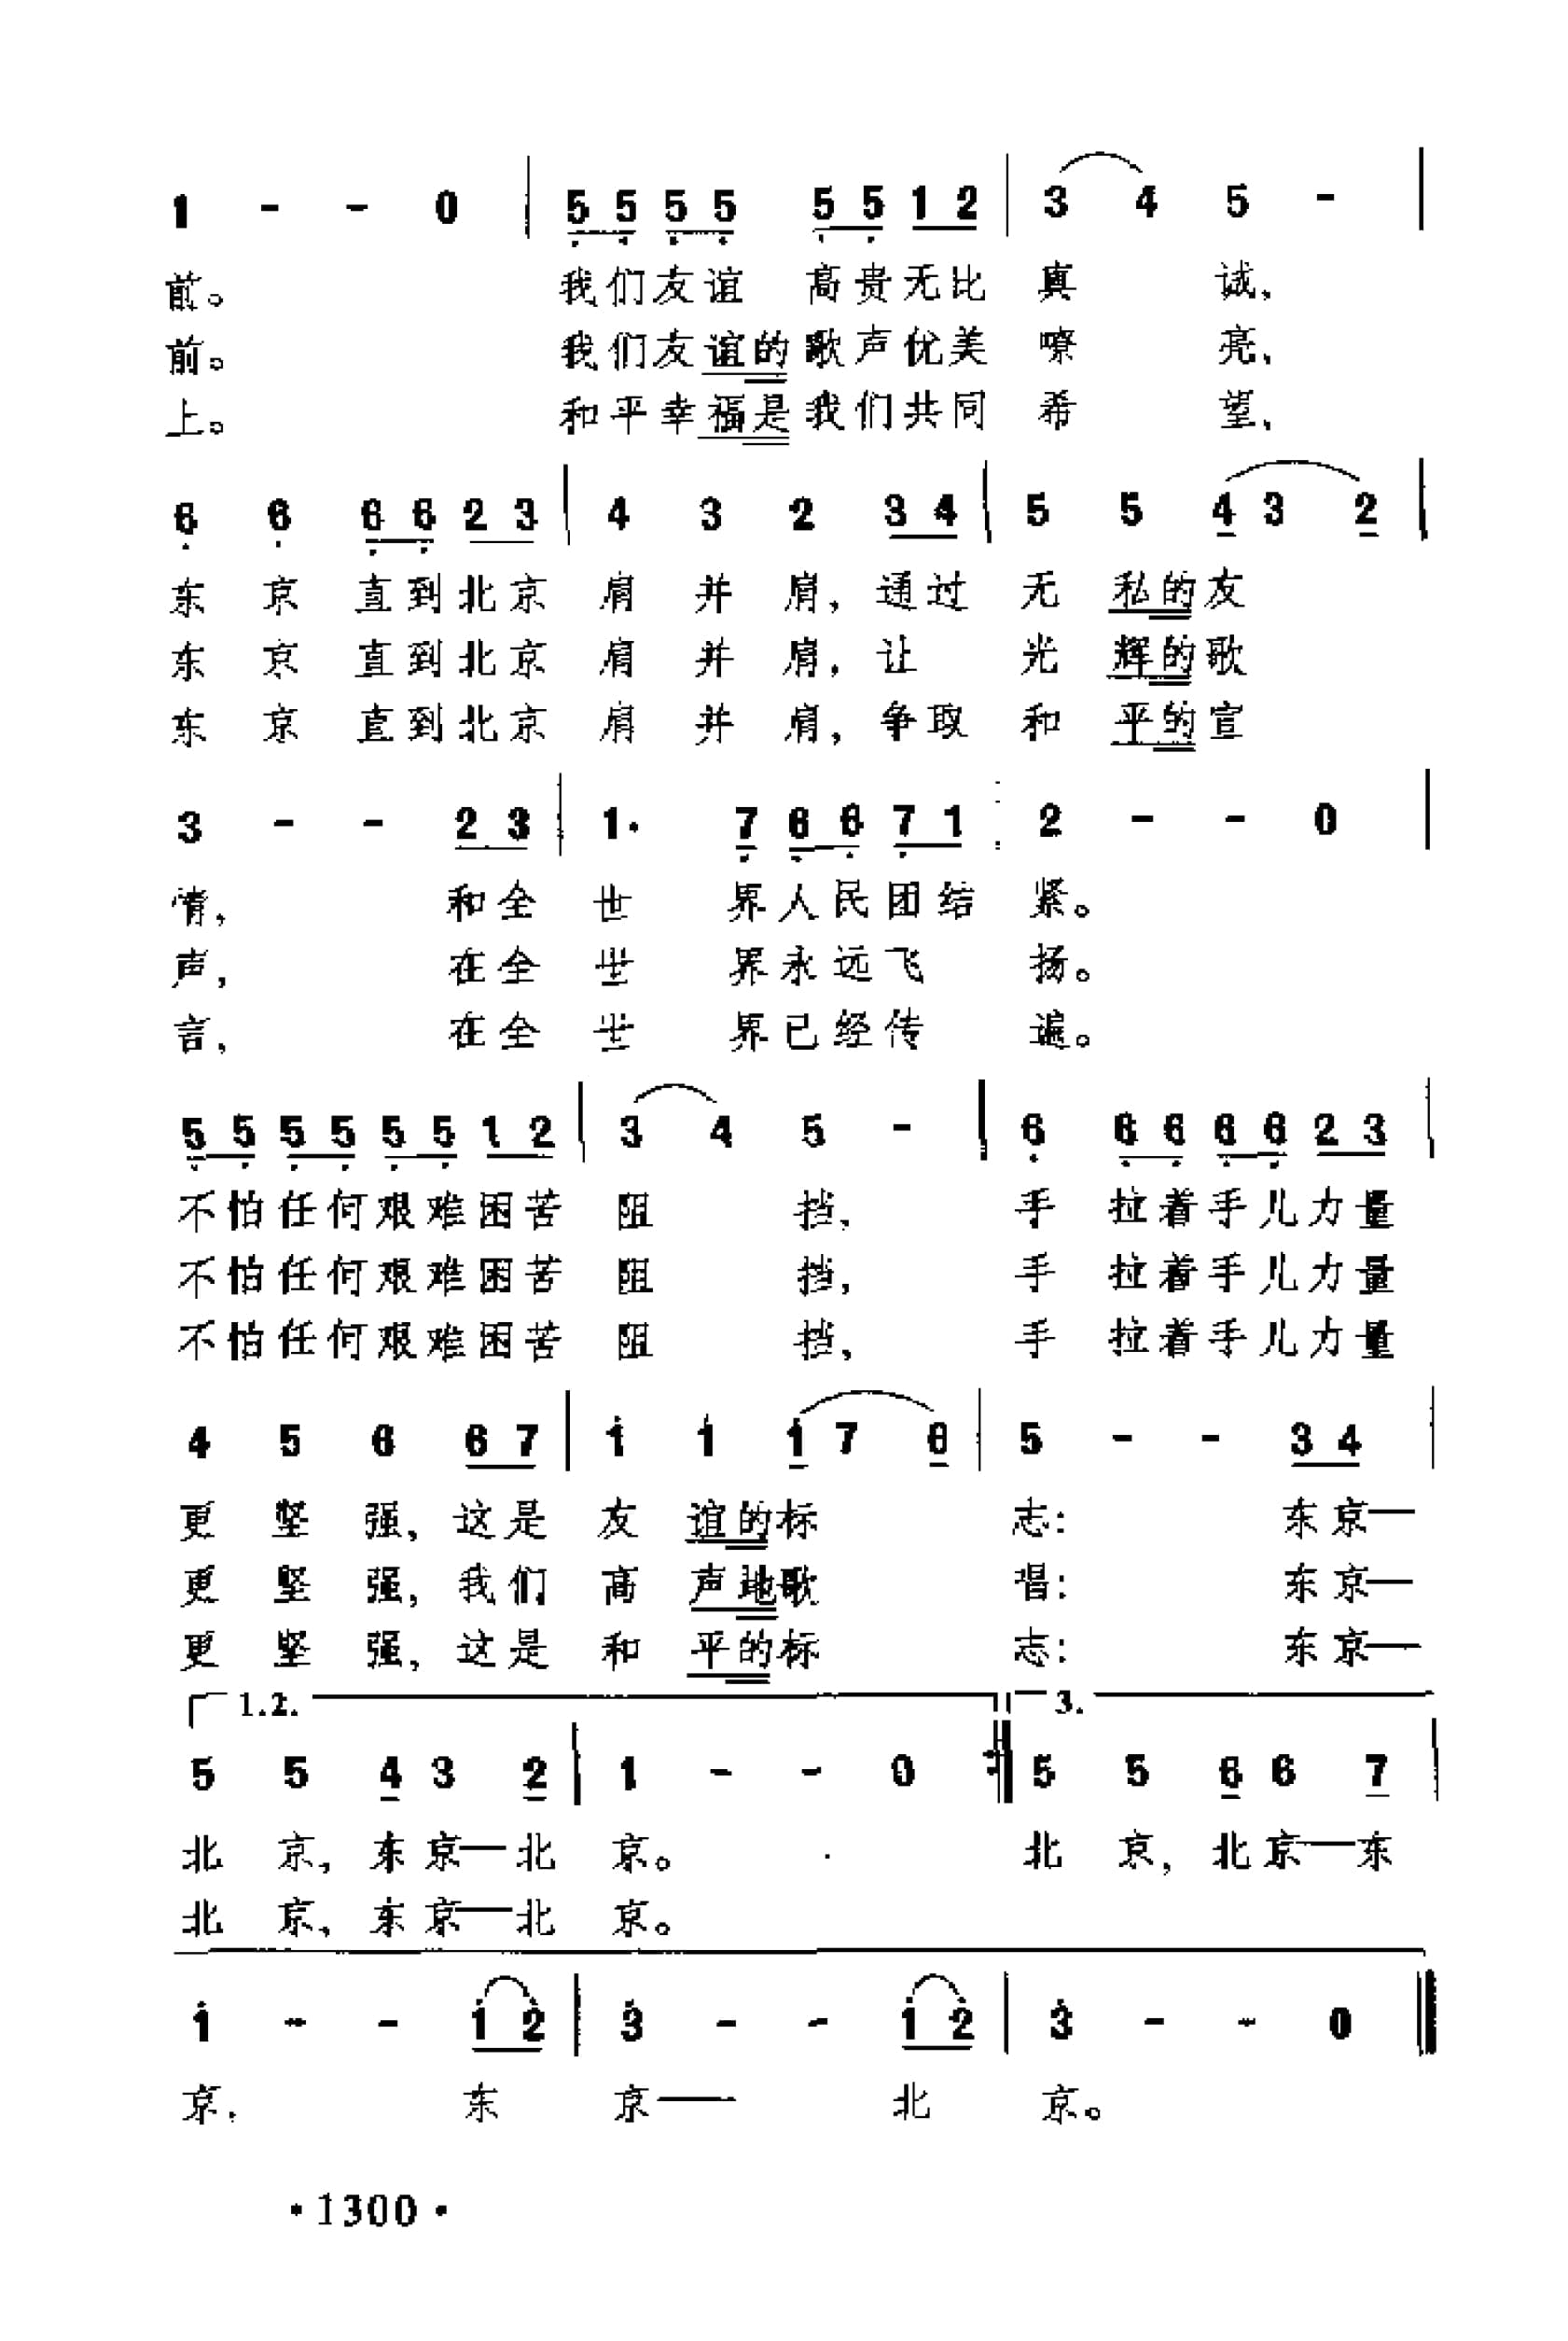 1 - - 0 | 5 5 5 5 5 5 1 2 | 3 4 5 - |
前。 我们友谊 高贵无比 真 诚,
前。 我们友谊的歌声优美 嘹 亮,
上。 和平幸福是我们共同 希 望,
6 6 6 6 2 3 | 4 3 2 3 4 | 5 5 4 3 2 |
东 京 直到北京 肩 并 肩, 通过 无 私的友
东 京 直到北京 肩 并 肩, 让 光 辉的歌
东 京 直到北京 肩 并 肩, 争取 和 平的宣
3 - - 2 3 | 1. 7 6 6 7 1 | 2 - - 0 |
情, 和全 世 界人民团结 紧。
声, 在全 世 界永远飞 扬。
言, 在全 世 界已经传 遍。
5 5 5 5 5 5 1 2 | 3 4 5 - | 6 6 6 6 6 2 3 |
不怕任何艰难困苦 阻 挡, 手 拉着手儿力量
不怕任何艰难困苦 阻 挡, 手 拉着手儿力量
不怕任何艰难困苦 阻 挡, 手 拉着手儿力量
4 5 6 6 7 | i i i 7 6 | 5 - - 3 4 |
更 坚 强, 这是 友 谊的标 志: 东京—
更 坚 强, 我们 高 声地歌 唱: 东京—
更 坚 强, 这是 和 平的标 志: 东京—
1.2. 3.
5 5 4 3 2 | 1 - - 0 :‖ 5 5 6 6 7 |
北 京, 东京—北 京。 北 京, 北京—东
北 京, 东京—北 京。
i - - i 2̇ | 3̇ - - i 2̇ | 3̇ - - 0 ‖
京, 东 京— 北 京。
·1300·